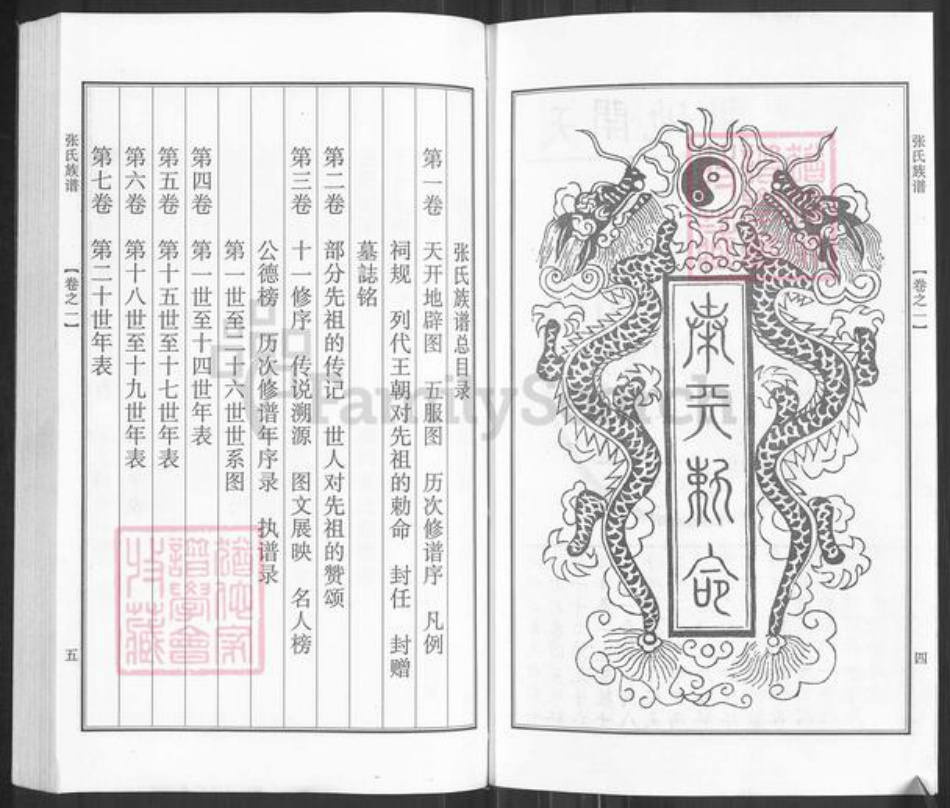 张氏族谱
【卷之一】
四
奉天敕命
张氏族谱总目录
第一卷 天开地辟图 五服图 历次修谱序 凡例
祠规 列代王朝对先祖的勅命 封任 封赠
墓誌铭
第二卷 部分先祖的传记 世人对先祖的赞颂
第三卷 十一修序 传说溯源 图文展映 名人榜
公德榜 历次修谱年序录 执谱录
第一世至二十六世世系图
第四卷 第一世至十四世年表
第五卷 第十五世至十七世年表
第六卷 第十八世至十九世年表
第七卷 第二十世年表
张氏族谱
【卷之一】
五
FamilySearch